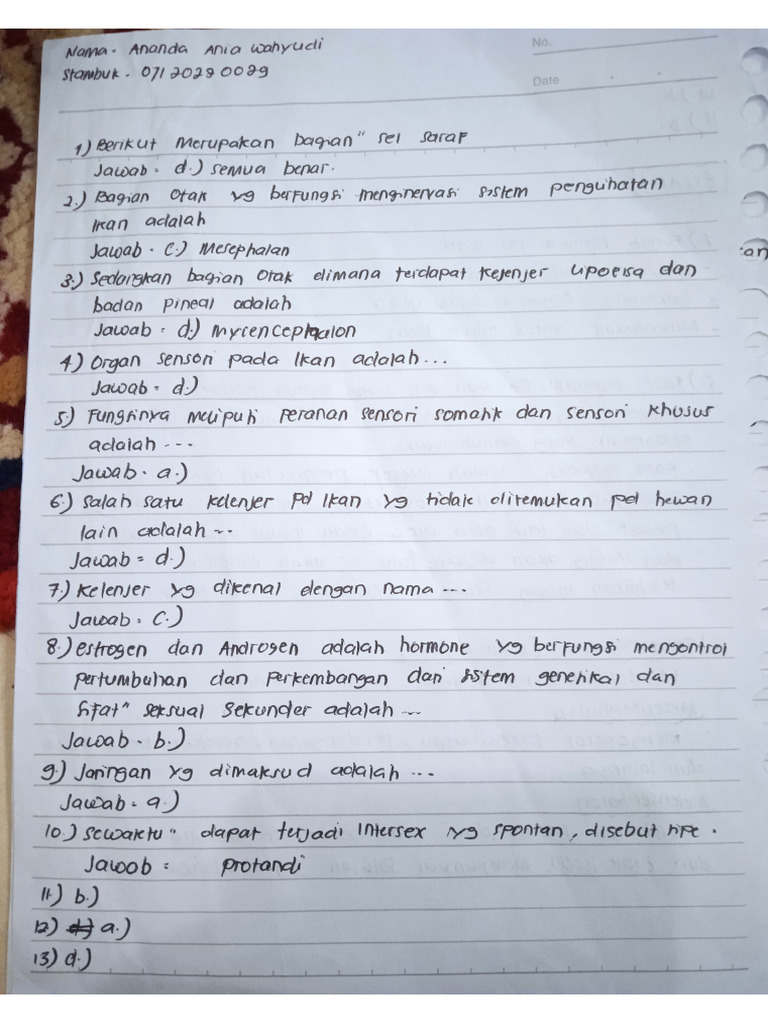 Nama. Ananda Ania Wahyudi
No.
Stambuk. 07120290029
Date
1) Berikut Merupakan bagian" sel saraf
Jawab. d.) semua benar.
2.) Bagian Otak yg berfungsi menginervasi sistem penguhatan
Ikan adalah
Jawab. C.) Mesephalan
3.) Sedangkan bagian Otak dimana terdapat Kelenjer Upoeisa dan
badan pineal adalah
Jawab = d.) Myrencephalon
4.) Organ sensori pada Ikan adalah...
Jawab = d.)
5.) Fungsinya meliputi Peranan sensori somatik dan sensori khusus
adalah ...
Jawab. a.)
6.) Salah satu kelenjer pd Ikan yg tidak ditemukan pd hewan
lain adalah ...
Jawab = d.)
7.) Kelenjer yg dikenal dengan nama ...
Jawab = C.)
8.) estrogen dan Androgen adalah hormone yg berfungsi mengontrol
pertumbuhan dan perkembangan dari sistem genetikal dan
Sifat" seksual sekunder adalah ...
Jawab. b.)
9.) Jaringan yg dimaksud adalah ...
Jawab = a.)
10.) sewaktu" dapat terjadi Intersex yg spontan, disebut tipe.
Jawab = protandi
11.) b.)
12) a.)
13) d.)